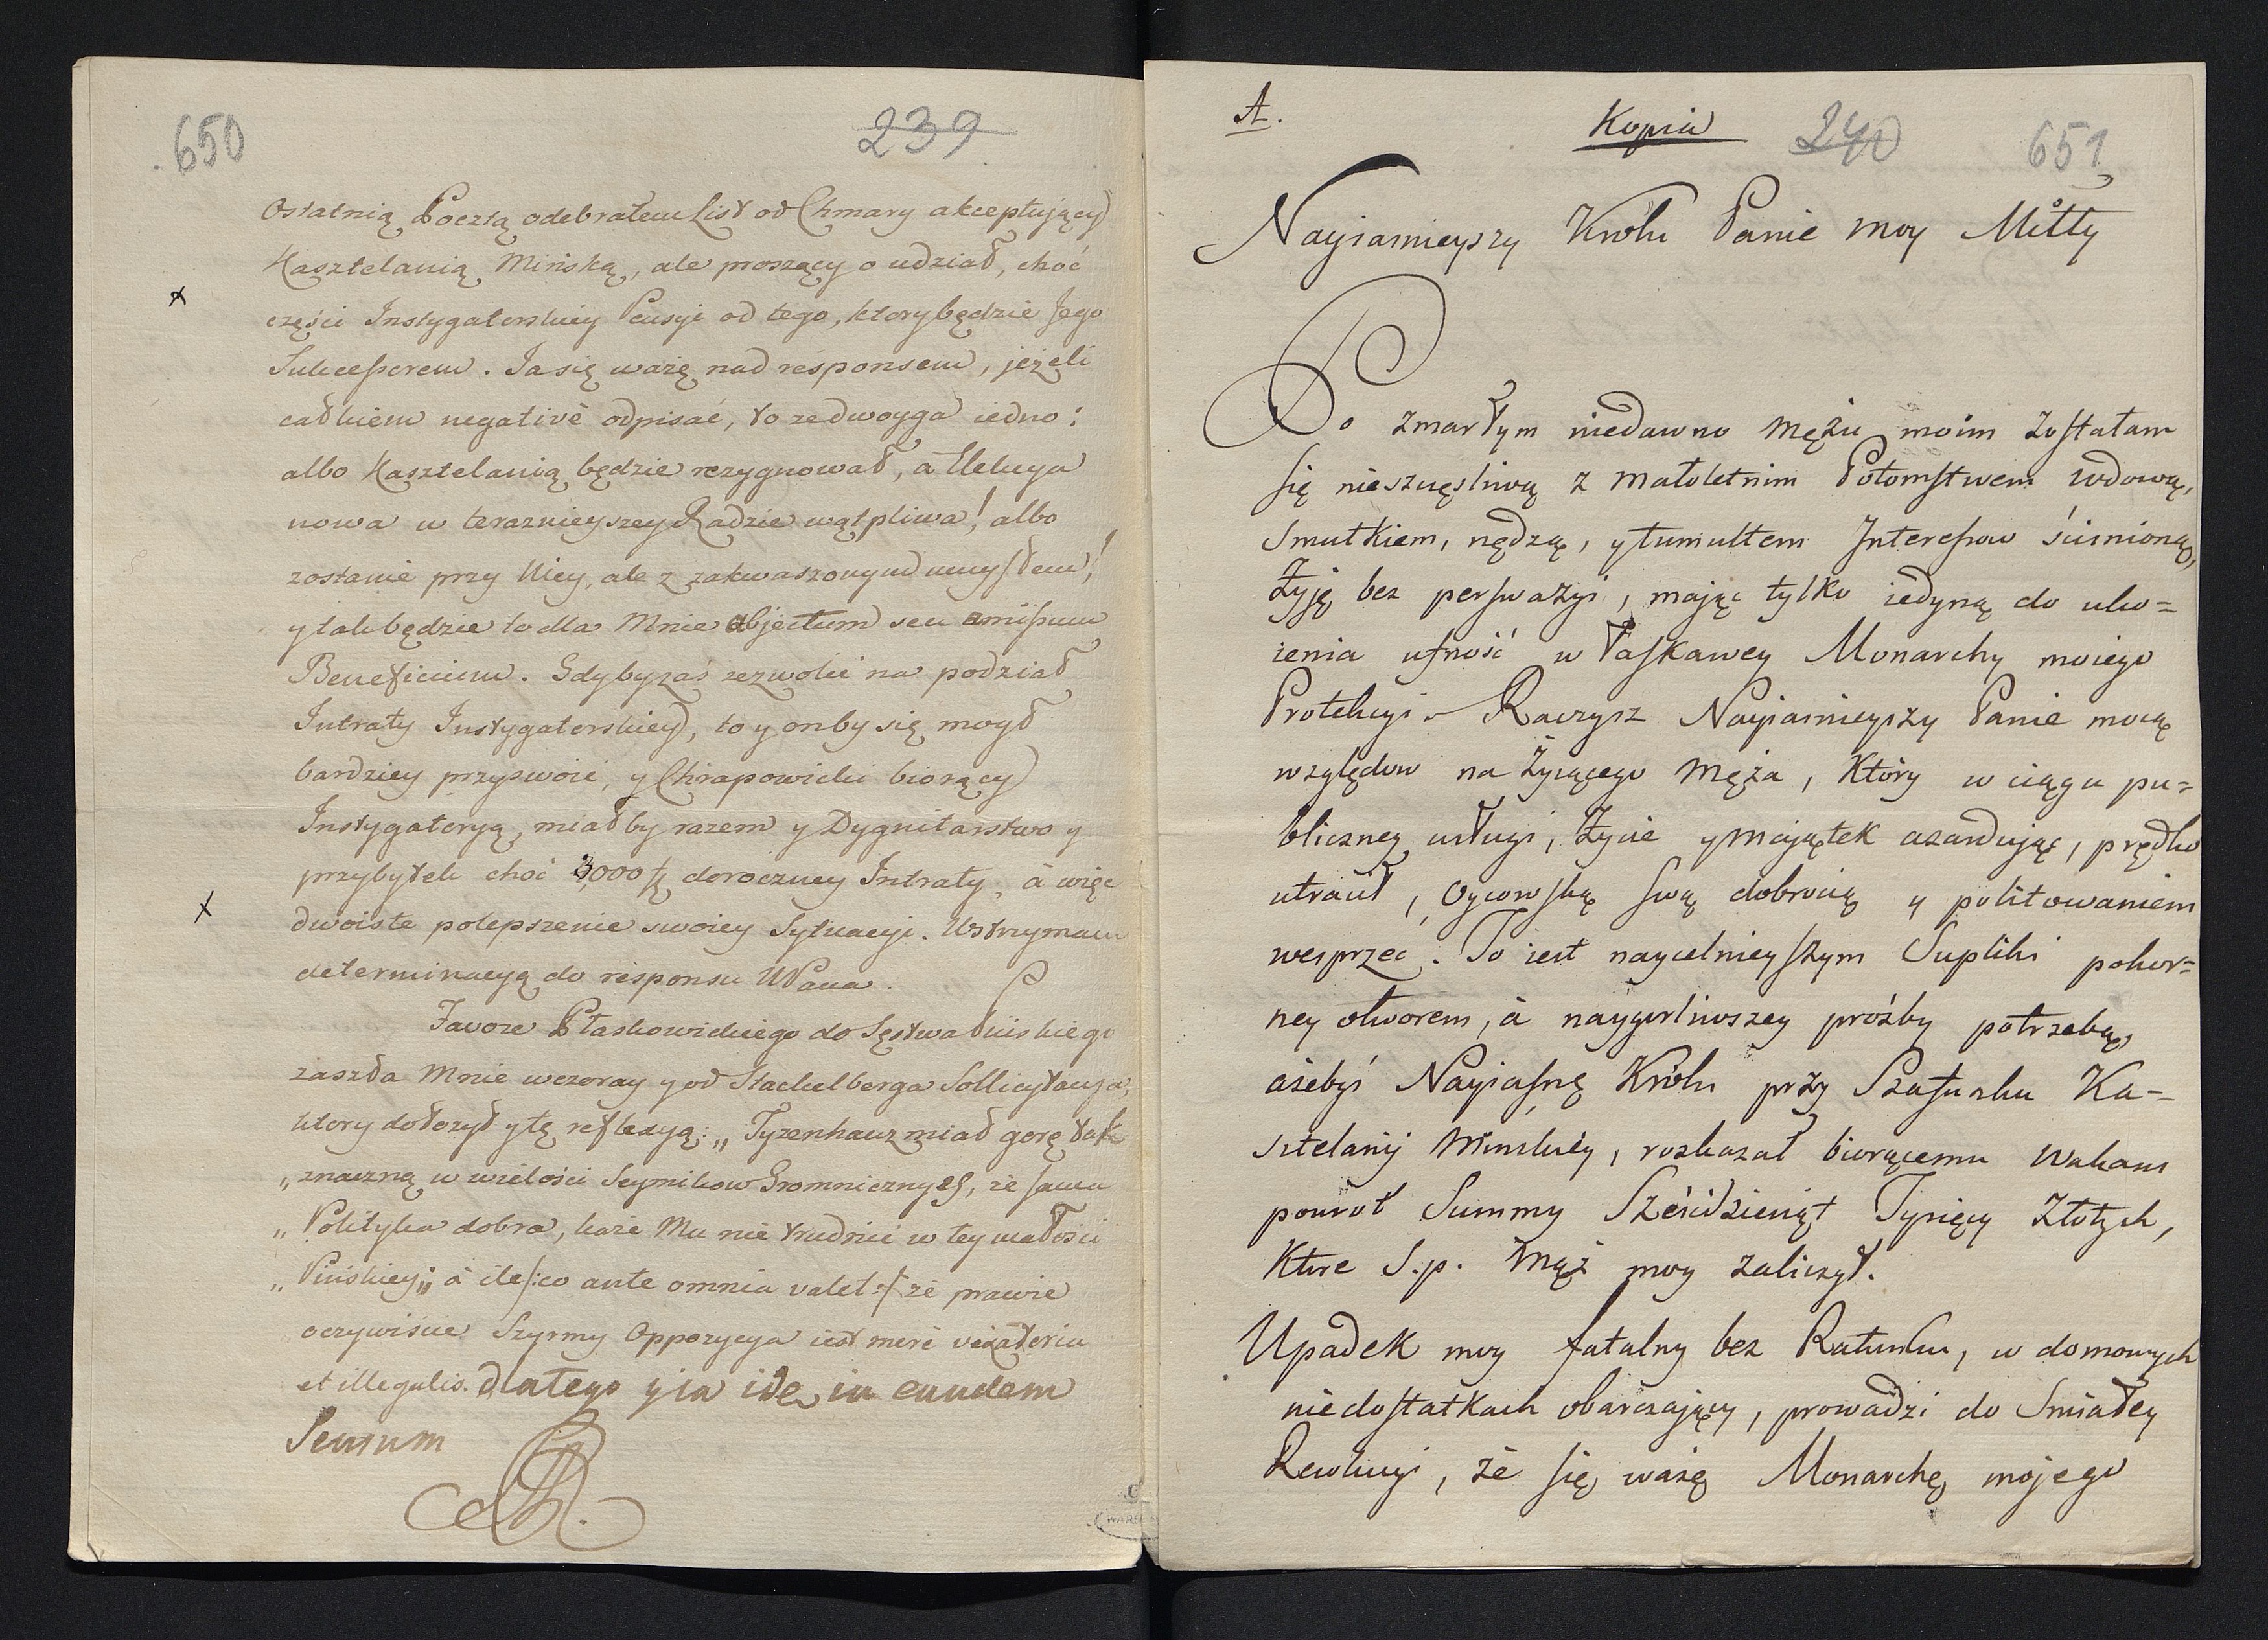 650
239
Ostatnią Pocztą odebrałem List od Chmary akceptujący
Kasztelanią Mińską, ale proszący o udział, choć
części Instygatorskiey Pensyi od tego, ktory będzie Jego
Sukcessorem. Ja się ważę nad responsem, jeżeli
całkiem negativè odpisać, to ze dwoyga iedno:
albo Kasztelanią będzie rezygnował, à Elekcya
nowa w teraznieyszey Radzie wątpliwa! albo
zostanie przy Niey, ale z zakwaszonym umysłem!
y tak będzie to dla Mnie abjectum seu amissum
Beneficium. Gdybyzaś zezwolić na podział
Intraty Instygatorskiey, to y onby się mogł
bardziey przyswoić, y Chrapowicki biorący
Instygatoryą, miałby razem y Dygnitarstwo y
przybytek choć 3,000 fl. doroczney Intraty, à więc
dwoiste polepszenie swoiey Sytuacyi. Wstrzymam
determinacyą do responsu WPana.
Favore Płaskowickiego do Sęstwa Pińskiego
zaszła Mnie wczoray y od Stackelberga Sollicytacya,
ktory dołożył y tę reflexyą: „Tyzenhauz miał gorę tak
„znaczną w wielości Seymikow Gromnicznych, że sama
„Polityka dobra, każe Mu nie trudnić w tey małości
„Pińskiey„ à ile /: co ante omnia valet :/ że prawie
oczywiście Szyrmy Oppozycya iest merè vexatoria
et illegalis. dlatego y ia idę in eundem
Sensum
SAR.
A.
Kopia
240
651
Nayiasnieyszy Krolu Panie moy Miłły
Po zmarłym niedawno Mężu moim zostałam
się nieszczęsliwą z małoletnim Potomstwem wdową,
smutkiem, nędzą, y tumultem Interessow ściśnioną,
Żyję bez perswazyi, mając tylko iedyną do uko=
ienia ufność w Łaskawey Monarchy moiego
Protekcyi. Raczysz Nayiasnieyszy Panie mocą
względow na Żyiącego Męża, Który w ciągu pu=
bliczney usługi, Życie y majątek azardując, prędko
utracił, Oycowską swą dobrocią y politowaniem
wesprzeć. To iest naycelnieyszym Supliki pokor=
ney otworem, à naygorliwszey proźby potrzebą,
ażebyś Nayiasnę Krolu przy Szafunku Ka=
sztelanij Minskiey, rozkazał biorącemu Wakans
powrot Summy Sześćdziesiąt Tysięcy Złotych,
Ktore S.p. Mąż moy zaliczył.
Upadek moy fatalny bez Ratunku, w domowych
niedostatkach obarczający, prowadzi do Smiałey
Rewolucyi, że się ważę Monarchę mojego